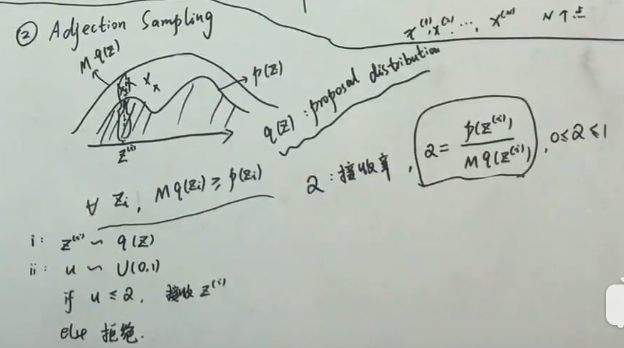 ② Adjection Sampling
x⁽¹⁾, x⁽²⁾, …, x⁽ᴺ⁾ N个点
M q(z)
p(z)
z⁽ⁱ⁾
q(z): proposal distribution
∀ zᵢ, M q(zᵢ) ≥ p(zᵢ)
α: 接收率, α = p(z⁽ⁱ⁾) / M q(z⁽ⁱ⁾), 0 ≤ α ≤ 1
i: z⁽ⁱ⁾ ~ q(z)
ii: u ~ U(0,1)
if u ≤ α, 接收 z⁽ⁱ⁾
else 拒绝.